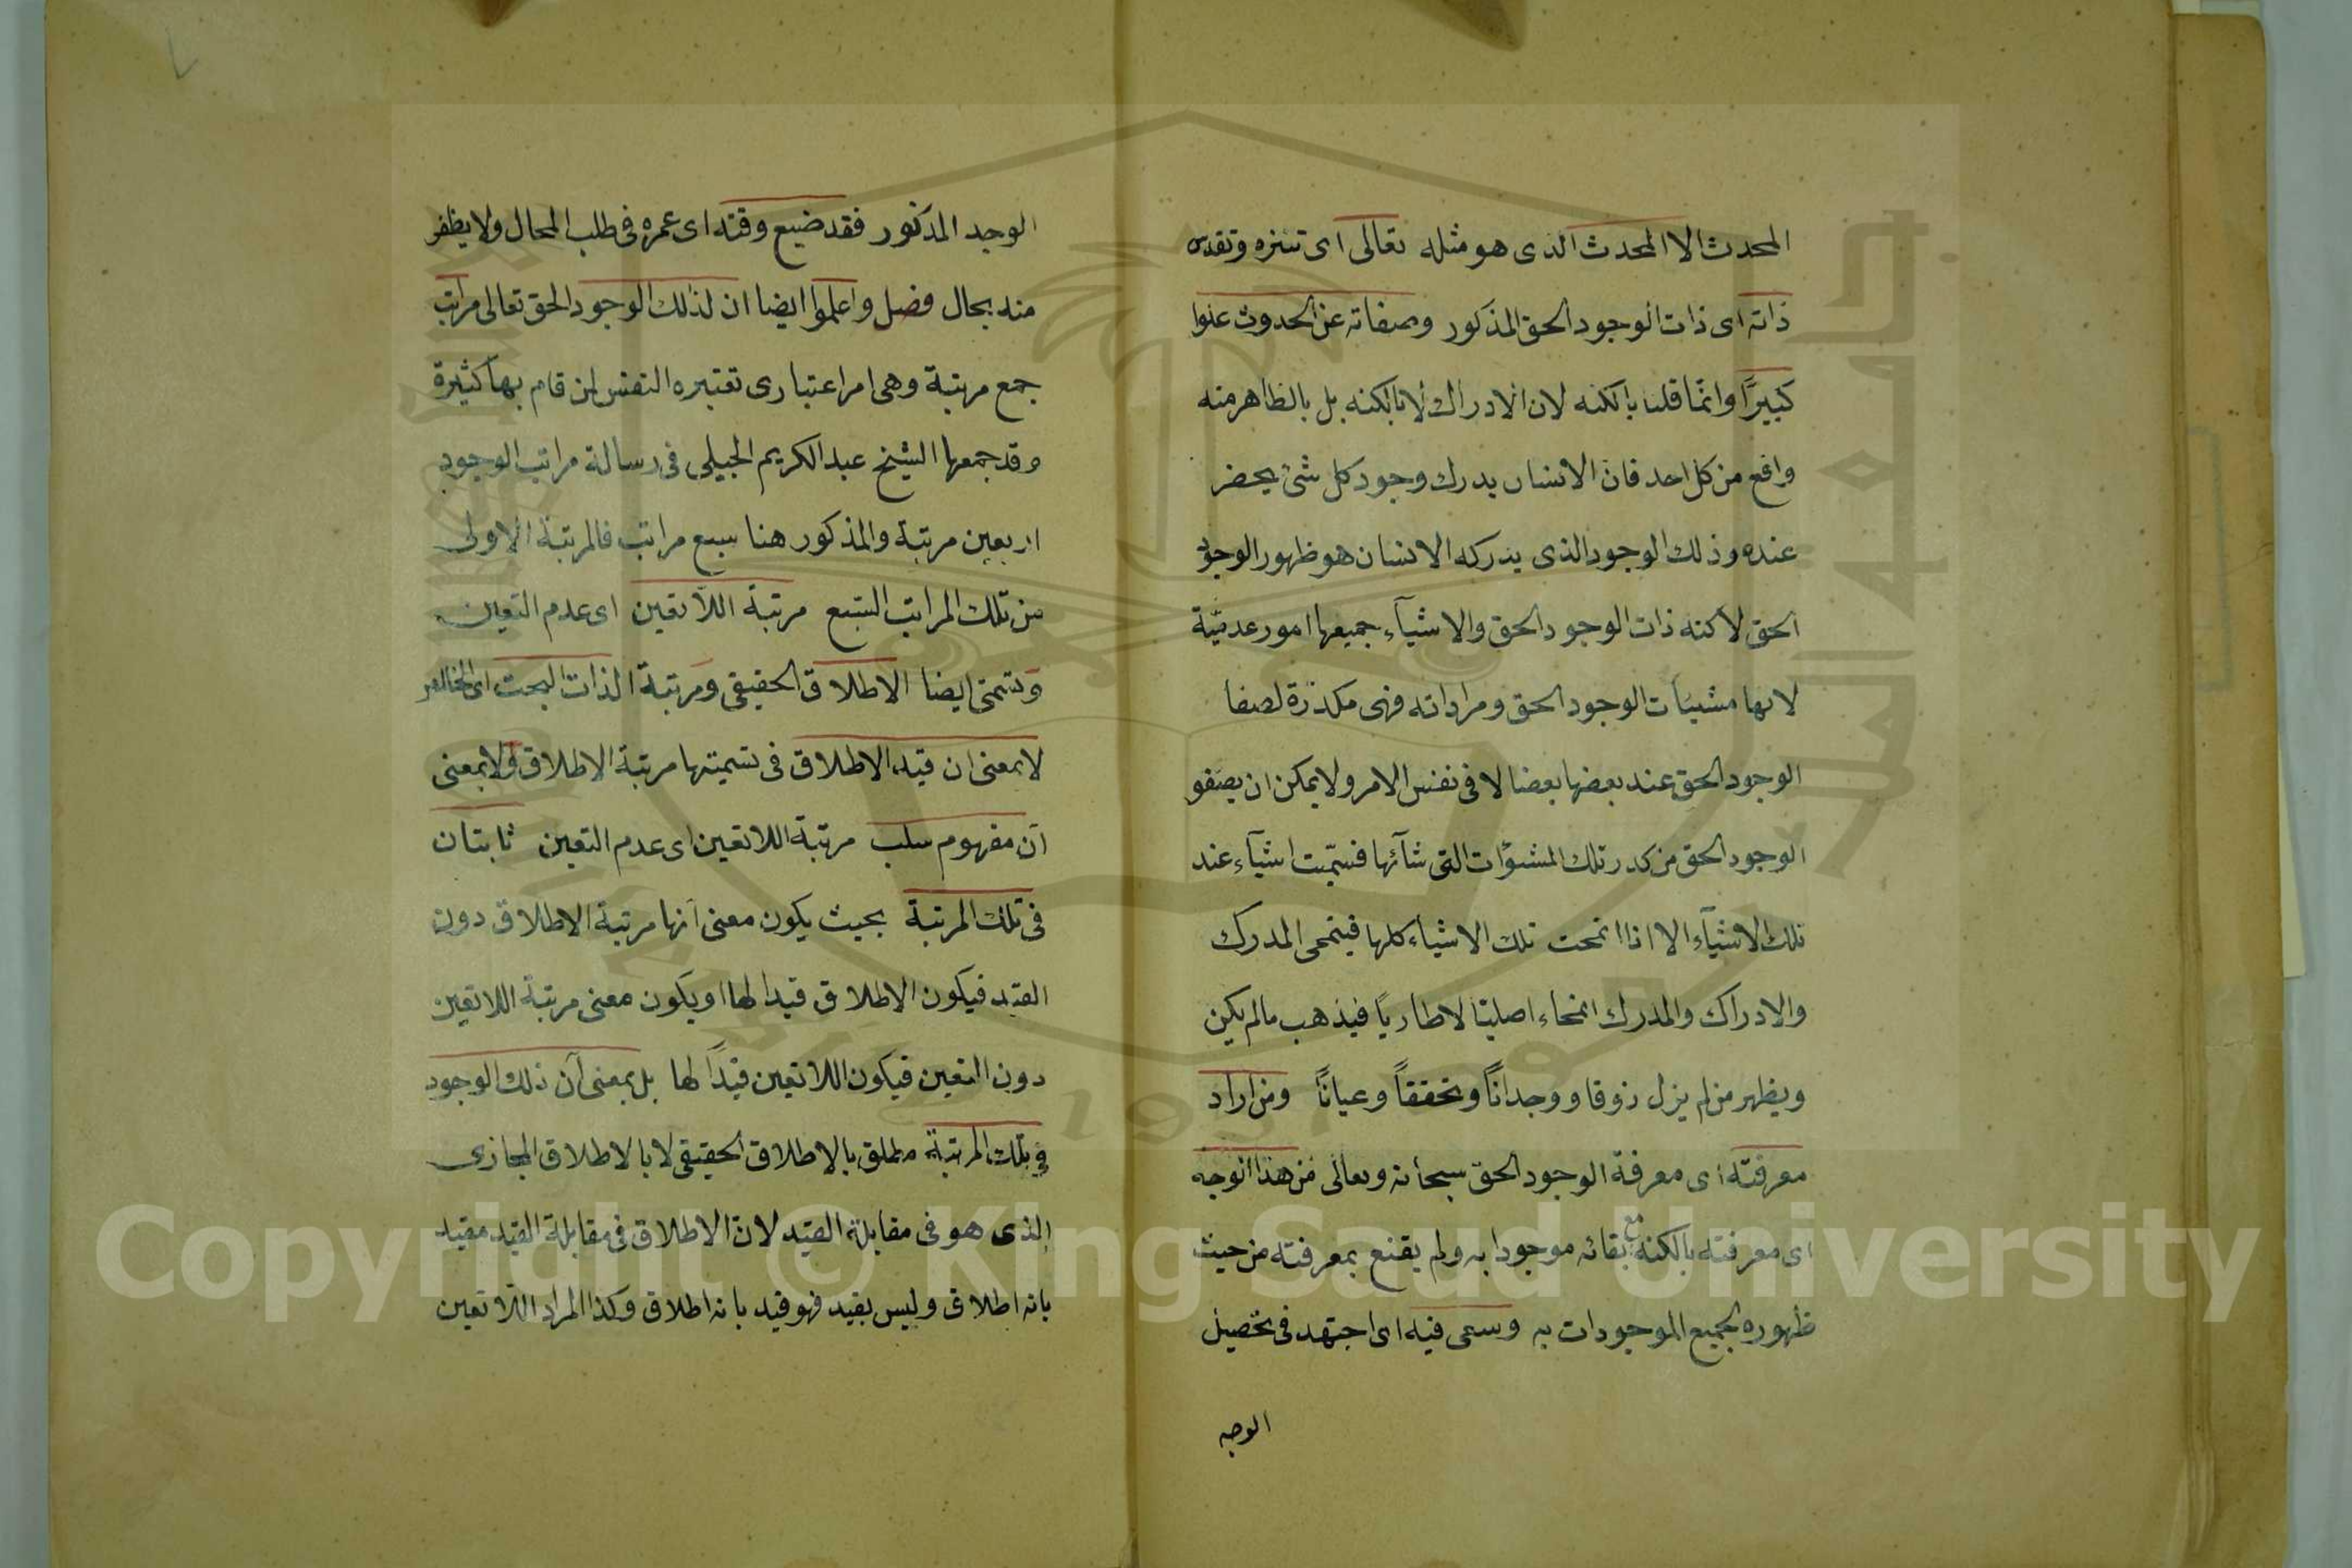 المحدث الا المحدث الذى هو مثله تعالى اى تنزه وتقدس
ذاته اى ذات الوجود الحق المذكور وصفاته عن الحدوث علوا
كبيرًا وانما قلنا بالكنه لان الادراك لا بالكنه بل بالظاهر منه
واقع من كل احد فان الانسان يدرك وجود كل شئ يحضر
عنده وذلك الوجود الذى يدركه الانسان هو ظهور الوجود
الحق لا كنه ذات الوجود الحق والاشيآء جميعها امور عدميّة
لانها مشيئات الوجود الحق ومراداته فهى مكدرة لصفا
الوجود الحق عند بعضها بعضا لا فى نفس الامر ولا يمكن ان يصفو
الوجود الحق من كدر تلك المشوات التى شآئها فسمّيت اشيآء عند
تلك الاشيآء الا اذا انمحت تلك الاشياء كلها فينمحى المدرك
والادراك والمدرك انمحاء اصليا لا طاريًا فيذهب مالم يكن
ويظهر من لم يزل ذوقا ووجدانًا وتحققًا وعيانًا ومن اراد
معرفته اى معرفة الوجود الحق سبحانه وتعالى من هذا الوجه
اى معرفته بالكنه مع بقائه موجودا به ولم يقنع بمعرفته من حيث
ظهوره بجميع الموجودات به وسعى فيه اى اجتهد فى تحصيل
الوجه
الوجه المذكور فقد ضيع وقته اى عمره فى طلب المحال ولا يظفر
منه بحال وصل واعلموا ايضا ان لذلك الوجود الحق تعالى مراتب
جمع مرتبة وهى امر اعتبارى تعتبره النفس لمن قام بها كثيرة
وقد جمعها الشيخ عبد الكريم الجيلى فى رسالة مراتب الوجود
اربعين مرتبة والمذكور هنا سبع مراتب فالمرتبة الاولى
من تلك المراتب السبع مرتبة اللاتعين اى عدم التعين
وتسمى ايضا الاطلاق الحقيقى ومرتبة الذات البحت اى الخالص
لا بمعنى ان قيد الاطلاق فى تسميتها مرتبة الاطلاق ولا بمعنى
ان مفهوم سلب مرتبة اللاتعين اى عدم التعين ثابتان
فى تلك المرتبة بحيث يكون معنى انها مرتبة الاطلاق دون
القيد فيكون الاطلاق قيدا لها او يكون معنى مرتبة اللاتعين
دون التعين فيكون اللاتعين قيدًا لها بل بمعنى ان ذلك الوجود
فى تلك المرتبة مطلق بالاطلاق الحقيقى لا بالاطلاق المجازى
الذى هو فى مقابلة القيد لان الاطلاق فى مقابلة القيد مقيد
بانه اطلاق وليس بقيد فهو قيد بانه اطلاق وكذا المراد اللاتعين
Copyright © King Saud University